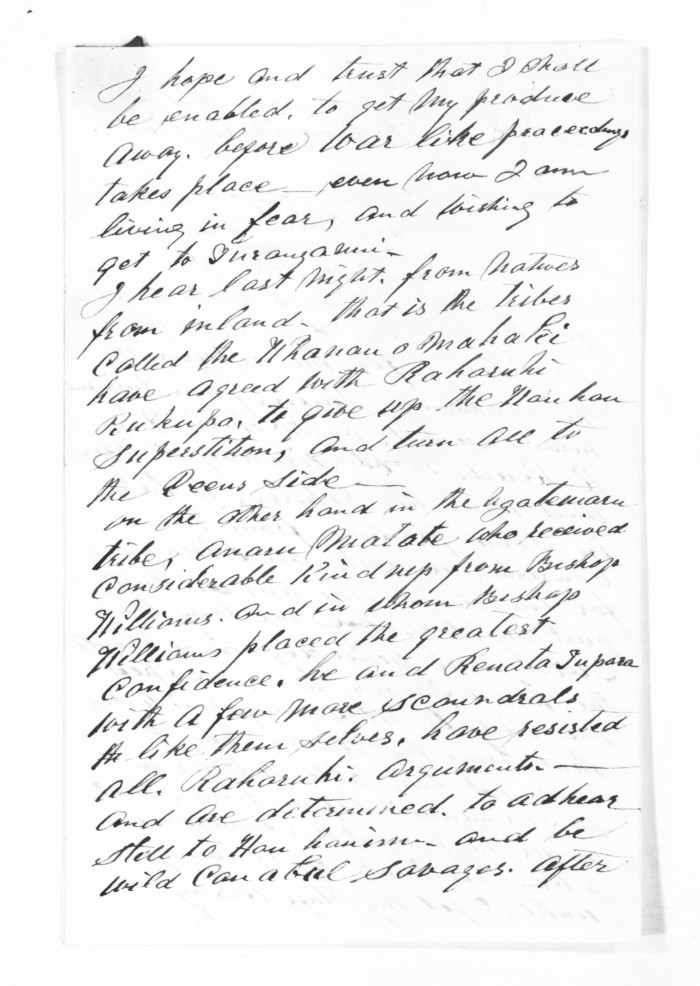 I hope and trust that I shall
be enabled. to get my produce
away. before War like proceedings
takes place — even now I am
living in fear, and wishing to
get to Turanganui -
I hear last night. from Natives
from inland - that is the tribes
called the Whanau o Mahaki
have agreed with Raharuhi
Rukupo, to give up the Hauhau
Superstition, and turn all to
the Queens Side —
on the other hand in the
tribe, Anaru Matate who received
Considerable Kindness from Bishop
Williams. and in whom Bishop
Williams placed the greatest
Confidence. he and Renata Tupara
with a few more scoundrals
like them selves. have resisted
all. Raharuhi. arguments. —
and are determined. to adhear
still to Hau hauism - and be
wild Canabul Savages. after